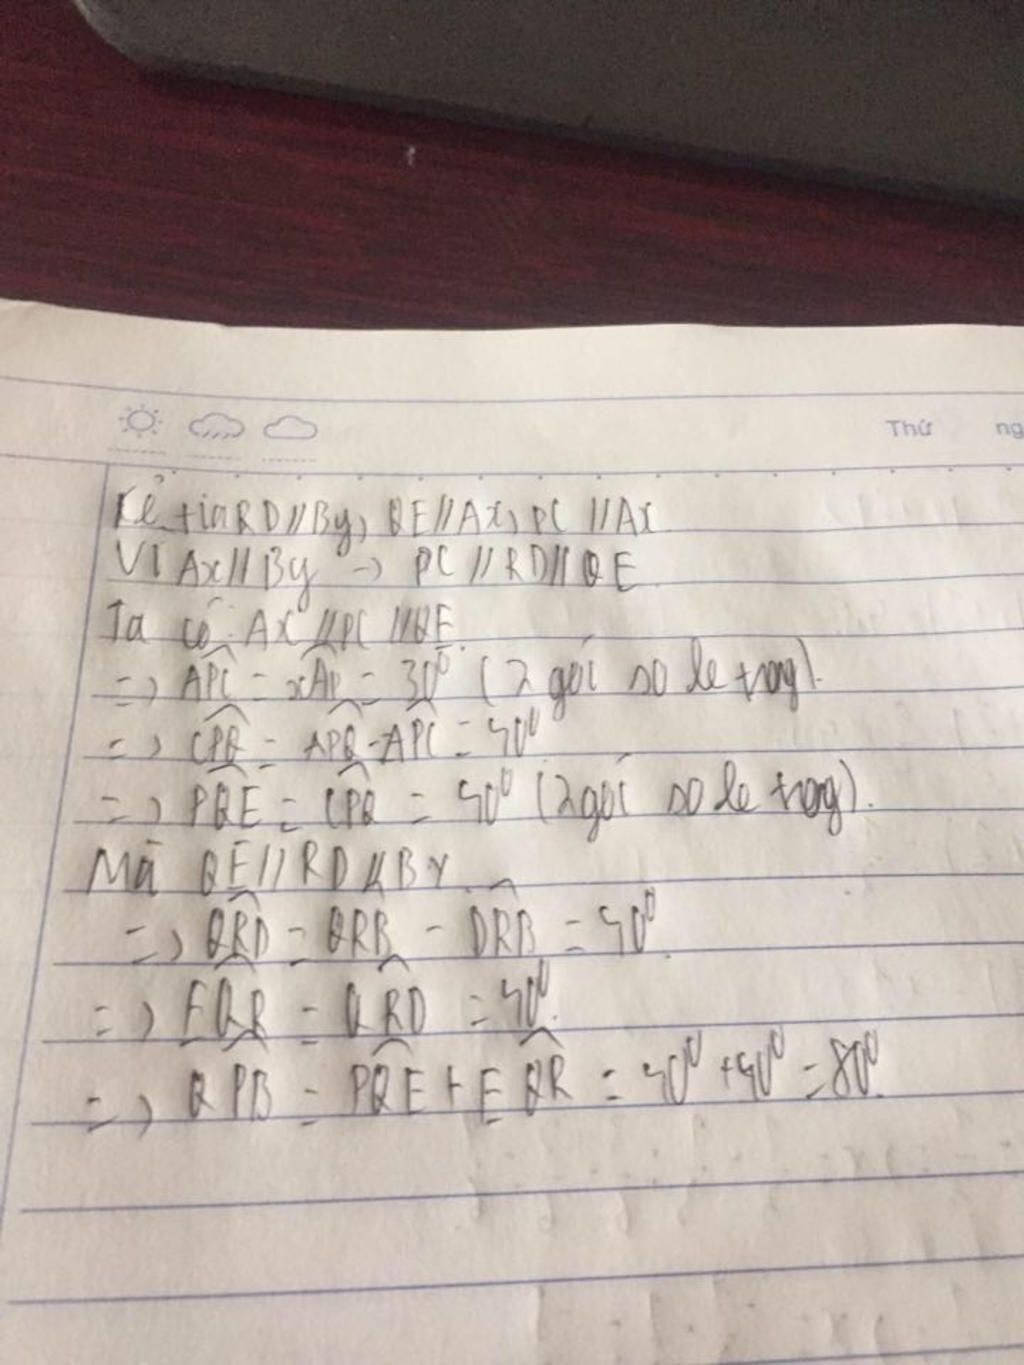 Thứ ng
Kẻ tia RD//By, QE//Ax, PC//Ax
Vì Ax//By -> PC//RD//QE
Ta có: Ax//PC//QE.
=> APC = xAP = 30⁰ (2 góc so le trong).
=> CPQ = APQ - APC = 40⁰
=> PQE = CPQ = 40⁰ (2 góc so le trong).
Mà QE//RD//By
=> QRD = QRB - DRB = 40⁰.
=> EQR = QRD = 40⁰.
=> QPB = PQE + EQR = 40⁰ + 40⁰ = 80⁰.